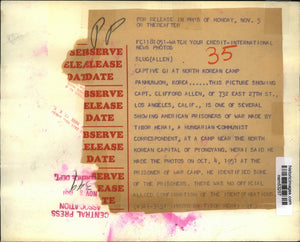 PP
FOR RELEASE IN PM'S OF MONDAY, NOV. 5
OR THEREAFTER
WATCH YOUR CREDIT-INTERNATIONAL
NEWS PHOTOS
35
SLUG(ALLEN)
CAPTIVE GI AT NORTH KOREAN CAMP
PANMUNJOM, KOREA.....THIS PICTURE SHOWING
CAPT. CLIFFORD ALLEN, OF 732 EAST 27TH ST.,
LOS ANGELES, CALIF., IS ONE OF SEVERAL
SHOWING AMERICAN PRISONERS OF WAR MADE BY
TIBOR MERAI, A HUNGARIAN COMMUNIST
CORRESPONDENT, AT A CAMP NEAR THE NORTH
KOREAN CAPITAL OF PYONGYANG. MERAI SAID HE
MADE THE PHOTOS ON OCT. 4, 1951 AT THE
PRISONER OF WAR CAMP. HE IDENTIFIED SOME
OF THE PRISONERS. THERE WAS NO OFFICIAL
ALLIED CONFIRMATION OF THE IDENTIFICATIONS
BSERVE
ELEASE
DATE
OBSERVE
RELEASE
DATE
OBSERVE
RELEASE
DATE
OBSERVE
RELEASE
DATE
CENTRAL PRESS
ASSOCIATION